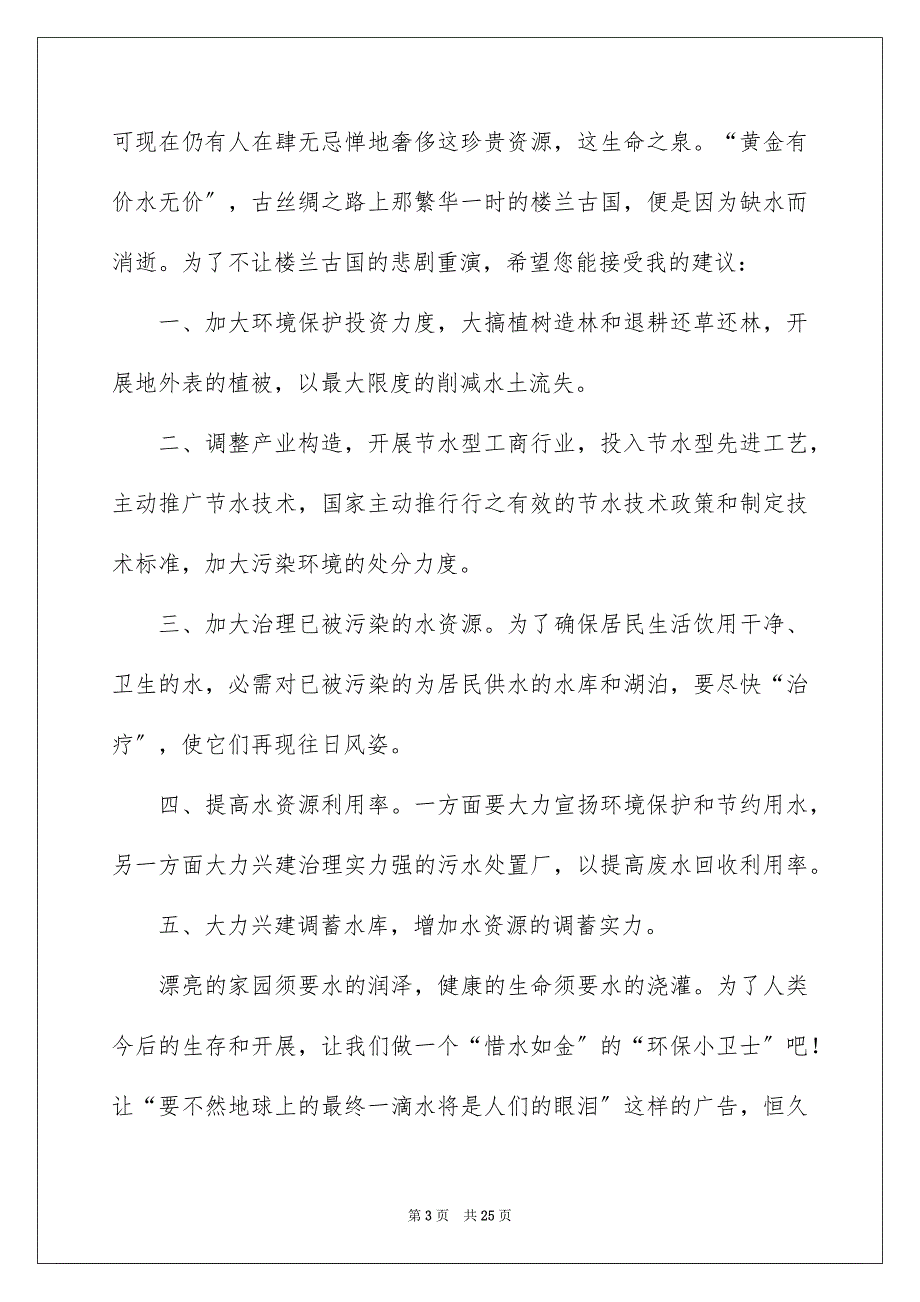 可现在仍有人在肆无忌惮地奢侈这珍贵资源，这生命之泉。“黄金有
价水无价〞，古丝绸之路上那繁华一时的楼兰古国，便是因为缺水而
消逝。为了不让楼兰古国的悲剧重演，希望您能接受我的建议：
一、加大环境保护投资力度，大搞植树造林和退耕还草还林，开
展地外表的植被，以最大限度的削减水土流失。
二、调整产业构造，开展节水型工商行业，投入节水型先进工艺，
主动推广节水技术，国家主动推行行之有效的节水技术政策和制定技
术标准，加大污染环境的处分力度。
三、加大治理已被污染的水资源。为了确保居民生活饮用干净、
卫生的水，必需对已被污染的为居民供水的水库和湖泊，要尽快“治
疗〞，使它们再现往日风姿。
四、提高水资源利用率。一方面要大力宣扬环境保护和节约用水，
另一方面大力兴建治理实力强的污水处置厂，以提高废水回收利用率。
五、大力兴建调蓄水库，增加水资源的调蓄实力。
漂亮的家园须要水的润泽，健康的生命须要水的浇灌。为了人类
今后的生存和开展，让我们做一个“惜水如金〞的“环保小卫士〞吧！
让“要不然地球上的最终一滴水将是人们的眼泪〞这样的广告，恒久
第 3 页 共 25 页